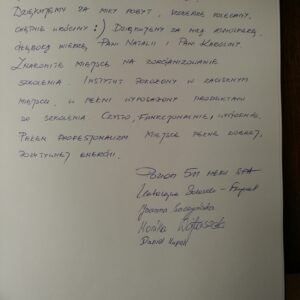 DZIĘKUJEMY ZA MIŁY POBYT, SZCZERZE POLECAMY,
CHĘTNIE WRÓCIMY :) DZIĘKUJEMY ZA MIŁĄ ATMOSFERĘ,
GŁĘBOKĄ WIEDZĘ PANI NATALII I PANI KAROLINY.
ZNAKOMITE MIEJSCE NA ZORGANIZOWANIE
SZKOLENIA. INSTYTUT POŁOŻONY W ZACISZNYM
MIEJSCU, W PEŁNI WYPOSAŻONY PRODUKTAMI
DO SZKOLENIA. CZYSTO, FUNKCJONALNIE I WYGODNIE.
PEŁEN PROFESJONALIZM MIEJSCE PEŁNE DOBREJ,
POZYTYWNEJ ENERGII.
Poziom 511
Katarzyna
Joanna
Monika Wojtaszek
Daniel